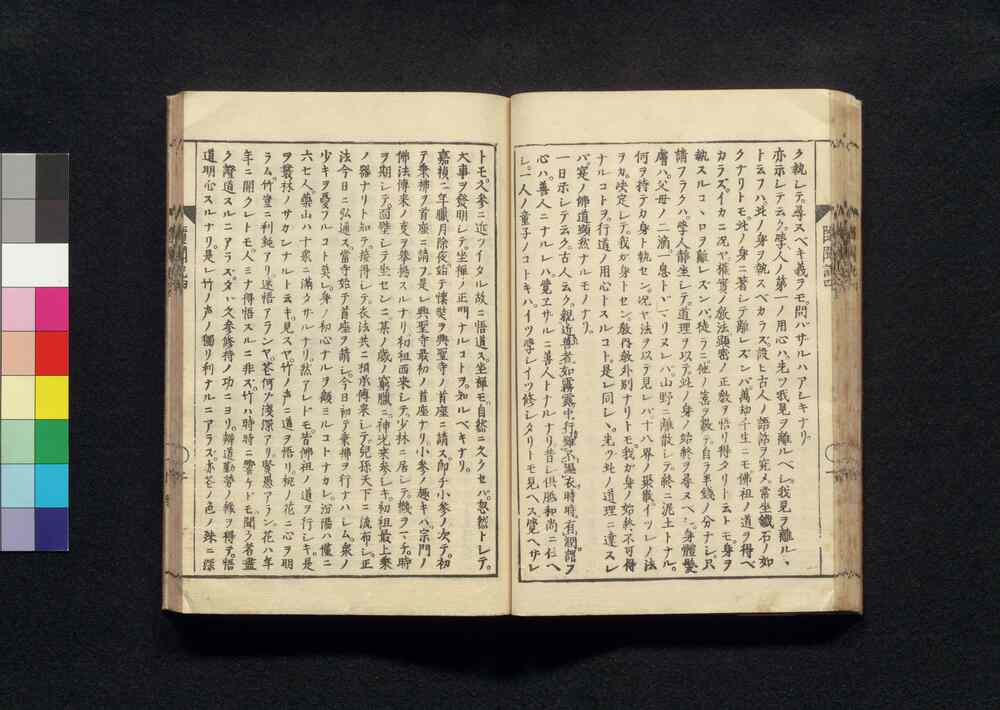 ク執レテ。尋スベキ義ヲモ。問ハザルハアレキナリ。
亦示レテ云ク。学人ノ第一ノ用心ハ。先ツ我見ヲ離ルベレ。我見ヲ離ル丶
トハ云フハ。此ノ身ヲ執スベカラズ。設ヒ古人ノ語話ヲ究メ。常坐鐵石ノ如
クナリトモ。此ノ身ニ著レテ離レズンバ。萬劫千生ニモ佛祖ノ道ヲ得ベ
カラズ。イカニ況ヤ權實ノ教法顯密ノ正教ヲ悟リ得タリト云トモ。身ヲ
執スルコ丶ロヲ離レズンバ。徒ラニ他ノ寳ヲ數テ。自ラ半錢ノ分ナシ。只
請フラクハ。學人靜坐レテ。道理ヲ以テ。此ノ身ノ始終ヲ尋ヌベシ。身體髮
膚ハ。父母ノ二滴一息トヾマリヌレバ。山野ニ離散レテ。終ニ泥土トナル。
何ヲ持テカ身ト執セン。況ヤ法ヲ以テ見レバ。十八界ノ聚散。イヅレノ法
ヲカ。决定レテ。我ガ身トセン。教内教外別ナリトモ。我ガ身ノ始終不可得
ナルコトヲ。行道ノ用心トスルコト。是レ同レ。先ツ此ノ道理ニ達スレ
バ。寔ノ佛道顯然ナルモノナリ。
一日示レテ云ク。古人云ク。親近善者。如霧露中行。雖不濕衣。時時有潤。謂フ
心ハ。善人ニナルレバ。覺エザルニ善人トナルナリ。昔レ倶胝和尚ニ仕ヘ
レ。一人ノ童子ノコトキハ。イツ學レイツ修レタリトモ見ヘス。覺ヘサレ
トモ。久参ニ近ツイタル故ニ悟道ス。坐禪モ。自然ニ久クセバ。忽然トレテ。
大事ヲ發明レテ。坐禪ノ正門ナルコトヲ。知ルベキナリ。
嘉禎二年臘月除夜。始テ懷奘ヲ興聖寺ノ首座ニ請ス。即チ小参ノ次テ。初
テ秉拂ヲ首座ニ請フ。是レ興聖寺最初ノ首座ナリ。小参ノ趣キハ。宗門ノ
佛法傳來ノ事ヲ擧揚スルナリ。初祖西來レテ。少林ニ居レテ。機ヲマチ。時
ヲ期レテ。面壁レテ坐セレニ。某ノ歳ノ窮臘ニ神光來参レキ。初祖最上乘
ノ器ナリト知テ。接得レテ。衣法共ニ相承傳來レテ。兒孫天下ニ流布レ。正
法今日ニ弘通ス。當寺始テ首座ヲ請レ。今日初テ秉拂ヲ行ナハレム。衆ノ
少キヲ憂フルコト莫レ。身ノ初心ナルヲ顧ミルコトナカレ。汾陽ハ僅ニ
六七人。藥山ハ十衆ニ滿タザルナリ。然アレドモ。皆佛祖ノ道ヲ行レキ。是
ヲ叢林ノサカレナルト云キ。見スヤ。竹ノ声ニ道ヲ悟リ。桃ノ花ニ心ヲ明
ラム。竹豈ニ利鈍アリ迷悟アランヤ。花何ノ淺深アリ。賢愚アラン。花ハ年
年ニ開クレトモ。人ミナ得悟スルニ非ズ。竹ハ時時ニ響ケドモ。聞ク者盡
ク證道スルニアラズ。タヾ久参修持ノ功ニヨリ。辨道勤勞ノ縁ヲ得テ。悟
道明心スルナリ。是レ竹ノ声ノ獨リ利ナルニアラス。亦花ノ色ノ殊ニ深